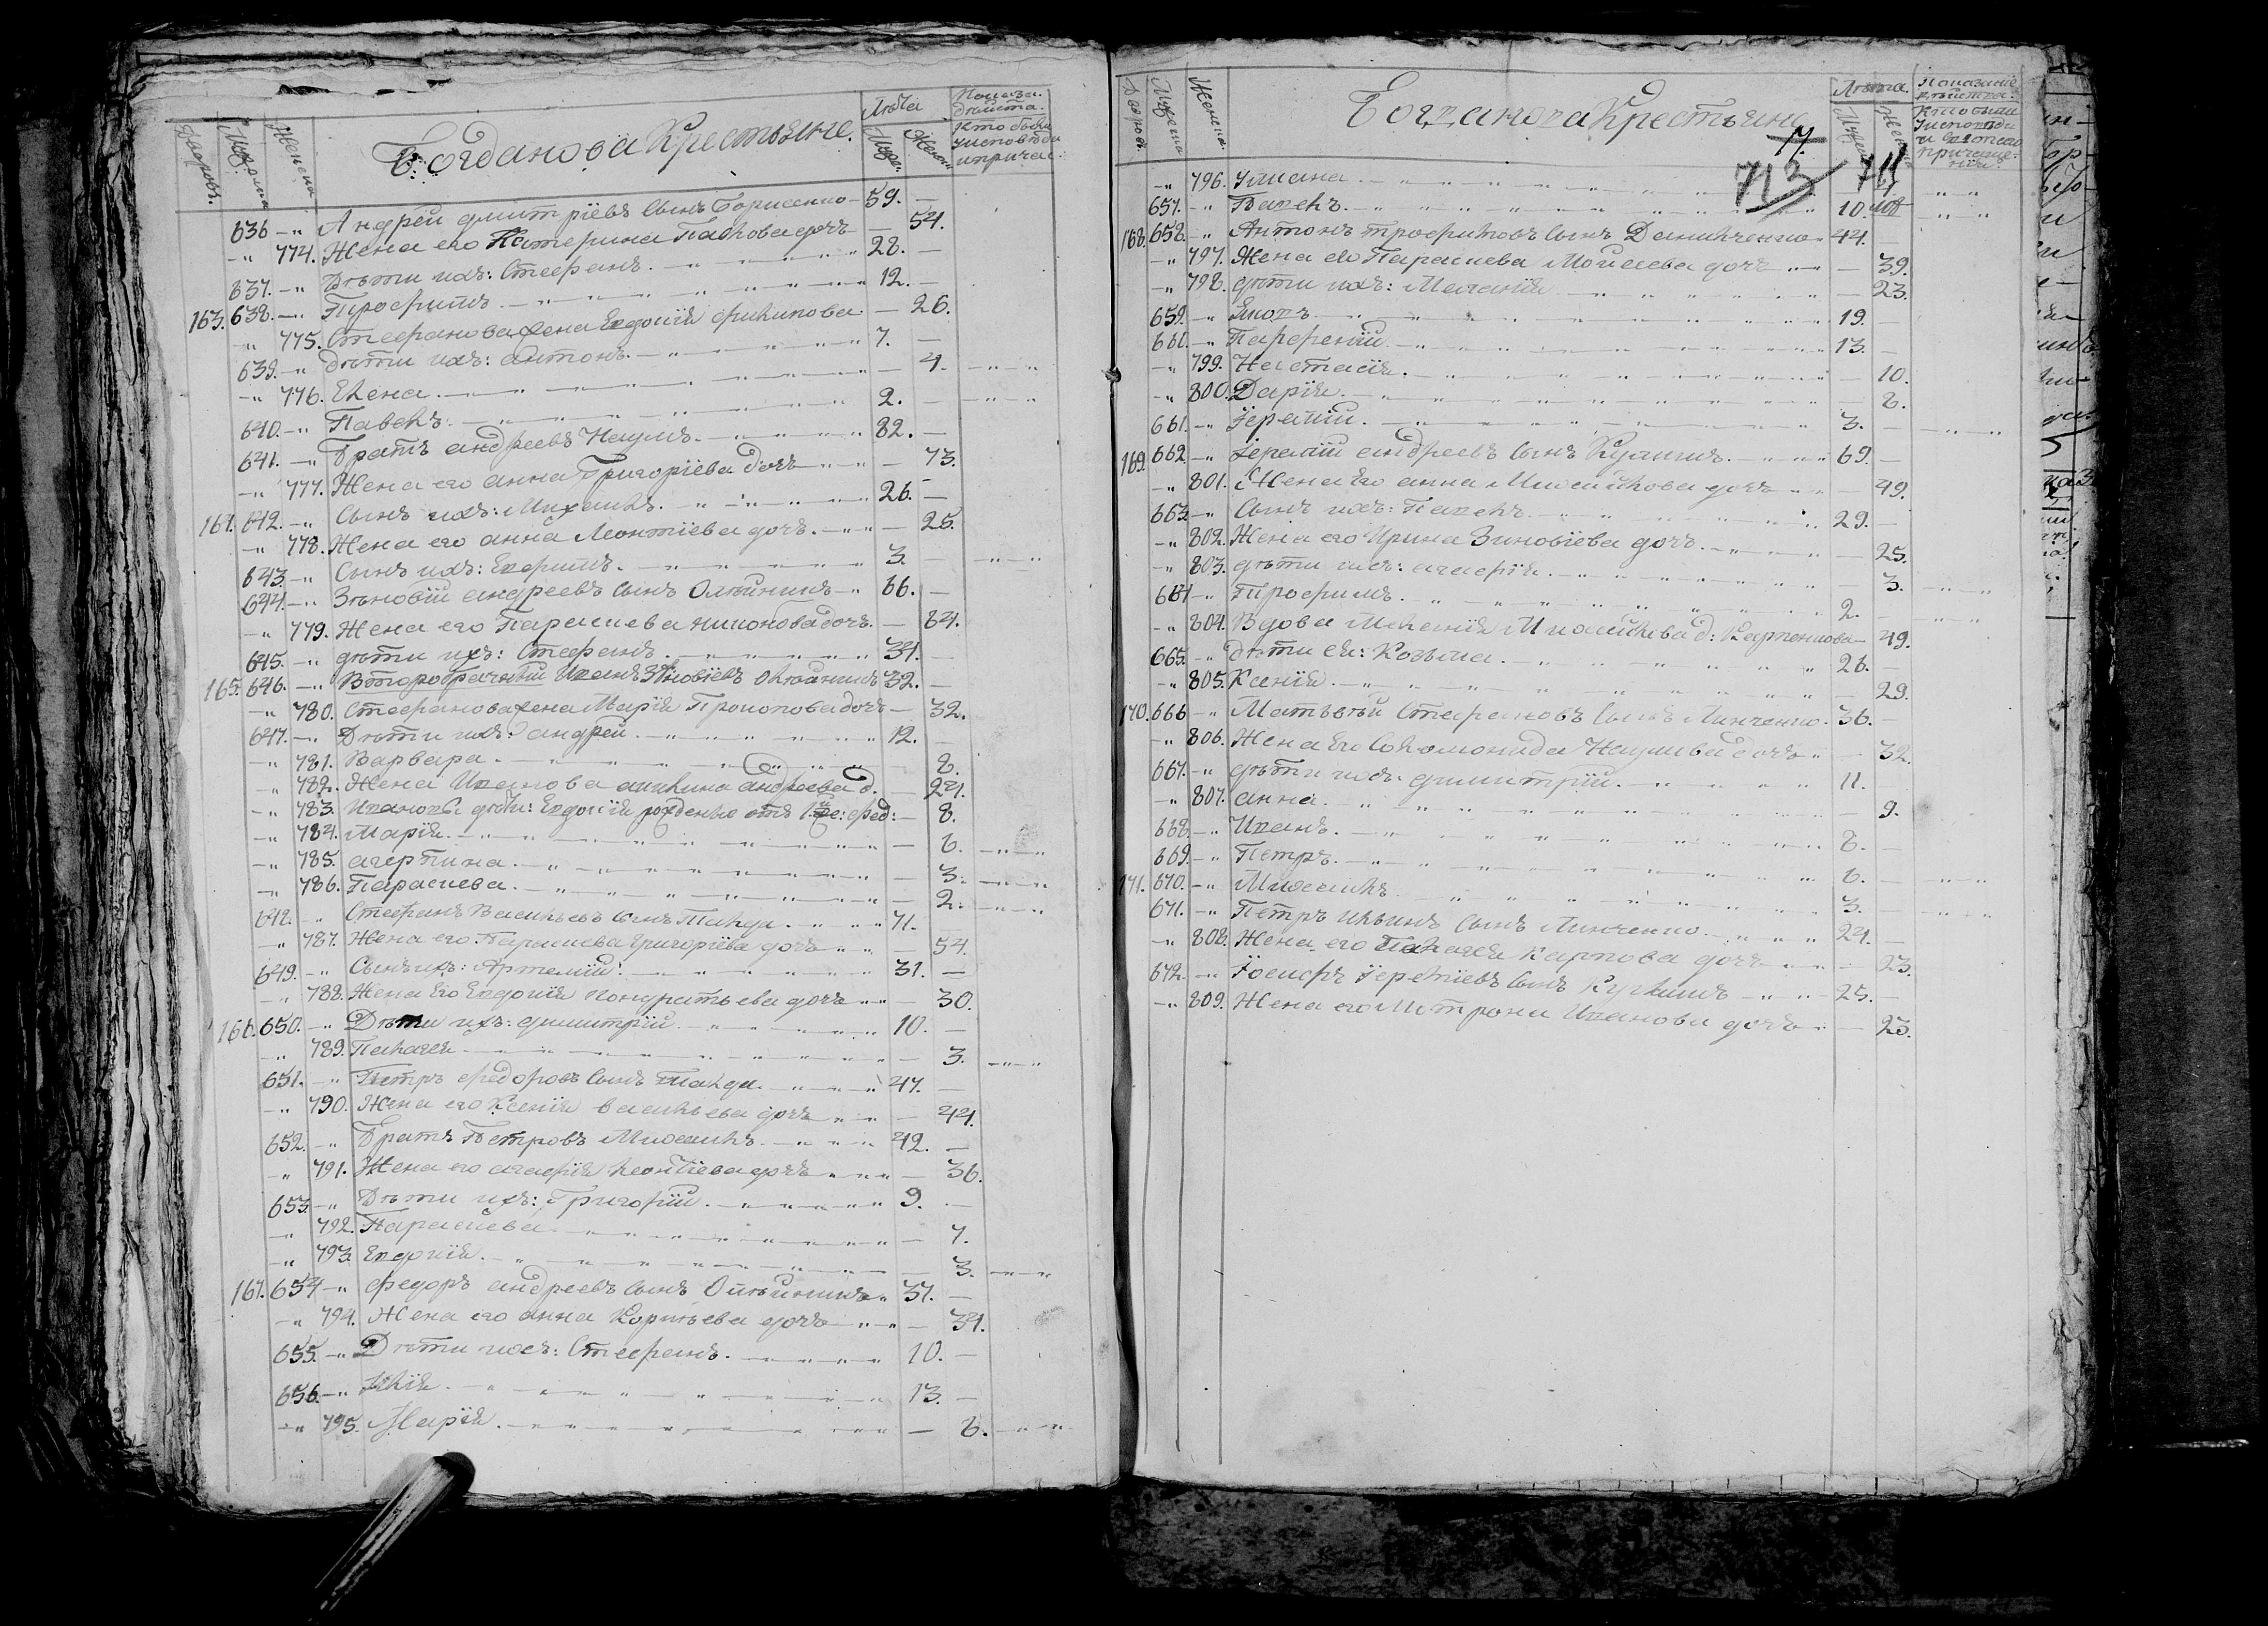 Дворовъ. Мужеска Женска Богданова Крестьяне. Лѣта Муже. Женск. Показа. дѣйств. Кто былъ у исповѣди и причас:
636 -" Андрей Дмитріевъ Сынъ Борисенко 59. —
-" 774. Жена его Катерина Павлова дочь — 54.
637. -" Дѣти ихъ: Стефанъ. 28. —
163. 638. -" Трофимъ 12. —
-" 775. Стефанова жена Евдокія Филипова — 26.
639. -" Дѣти ихъ: Антонъ. 7. —
-" 776. Елена — 4.
640. -" Павелъ. 2. —
641. -" Братъ Андреевъ Наумъ. 82. —
-" 777. Жена его Анна Григоріева дочь — 73.
164. 642. -" Сынъ ихъ: Михаилъ. 26. —
-" 778. Жена его Анна Леонтіева дочь. — 25.
643. -" Сынъ ихъ: Евфимъ. 3.
644. -" Зѣновій Андреевъ Сынъ Олѣйникъ 66. —
-" 779. Жена его Параскева Никонова дочь. — 64.
645. -" Дѣти ихъ: Стефанъ. 34. —
165. 646. -" Второбрачный Иванъ Зѣновіевъ Олѣйникъ 32. —
-" 780. Стефанова жена Марія Прокопова дочь — 32.
647. -" Дѣти ихъ: Андрей. 12. —
-" 781. Варвара. — 8.
-" 782. Жена Иванова Акилина Андреева д. — 24.
-" 783. Ивановы дѣти: Евдокія рожденые отъ 1й же: Фед: — 8.
-" 784. Марія. — 6.
-" 785. Агерпина. — 3.
-" 786. Параскева. — 2.
648. -" Стефанъ Васильевъ Сынъ Талда. 71.
-" 787. Жена его Параскева Григоріева дочь — 54.
649. -" Сынъ ихъ: Артемій. 31. —
-" 788. Жена его Евдокія Кондратьева дочь — 30.
166. 650. -" Дѣти ихъ: Димитрій 10. —
-" 789. Палагея — 3.
651. -" Петръ Федоровъ Сынъ Талда. 47. —
-" 790. Жена его Ксенія Васильева дочь — 44.
652. -" Братъ Петровъ Михаилъ. 42. —
-" 791. Жена его Агафія Леонтіева дочь — 36.
653. -" Дѣти ихъ: Григорій. 9. —
-" 792. Параскева — 7.
-" 793. Евдокія. — 3.
167. 654 -" Федоръ Андреевъ Сынъ Олѣйникъ 37. —
-" 794. Жена его Анна Корнѣева дочь — 34.
655. -" Дѣти ихъ: Стефанъ. 10. —
656. -" Илія. 13. —
-" 795. Марія. — 6.
Дворов. Мужеска Женска. Богданова Крестьяне Лѣта. Мужес Женска Показаніе дѣйства. Кто былъ у исповѣди и святого причащенія
713 711
-" 796. Уліана
657. -" Павелъ. 10.
168. 658. -" Антонъ Трофимовъ Сынъ Данильченко 44. —
-" 797. Жена его Параскева Мойсеева дочь — 39.
-" 798. Дѣти ихъ: Меланія — 23.
659. -" Яковъ 19. —
660. -" Парфеній 13. —
-" 799. Настасія. — 10.
-" 800. Дарія. — 8.
661. -" Іеремій. 3. —
169. 662. -" Іеремій Андреевъ Сынъ 69. —
-" 801. Жена его Анна Михайлова дочь — 49.
663. -" Сынъ ихъ: Павелъ. 29. —
-" 802. Жена его Ирина Зиновіева дочь. — 25.
-" 803. Дѣти ихъ: Агафія. — 3.
664 -" Трофимъ. 2.
-" 804. Вдова Меланія Михайлова д: Карпенкова — 49.
665. -" Дѣти ея: Козьма. 26. —
-" 805. Ксенія. — 29.
170. 666 -" Матьвѣй Стефановъ Сынъ Линченко. 36. —
-" 806. Жена его Соломонида Наумова дочь — 32.
667. -" Дѣти ихъ: Димитрій. 11. —
-" 807. Анна. — 9.
668. -" Иванъ. 8. —
669. -" Петръ. 6. —
171. 670. -" Михаилъ 3. —
671. -" Петръ Ильинъ Сынъ Линченко 24. —
-" 808. Жена его Палагея Карпова дочь — 23.
672. -" Іосифъ Іереміевъ Сынъ 25. —
-" 809. Жена его Матрона Иванова дочь — 23.